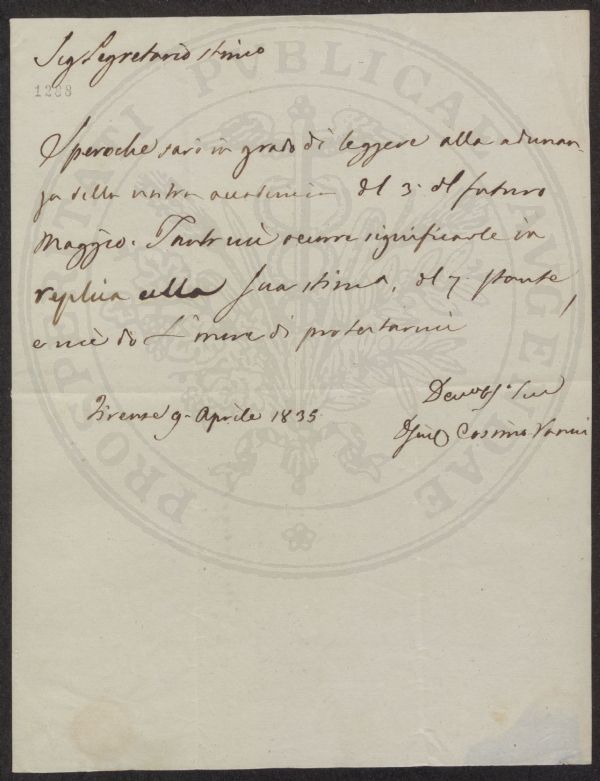 Sig Segretario stimo
1288
Spero che sarò in grado di leggere alla adunan-
za della nostra accademia del 3. del futuro
Maggio. Tanto mi occorre significarle in
replica alla Sua stima, del 7. stante
e mi do L'onore di protestarmi
Firenze 9. Aprile 1835
Cosimo Vanni
PROSPERITATI PVBLICAE AVGENDAE